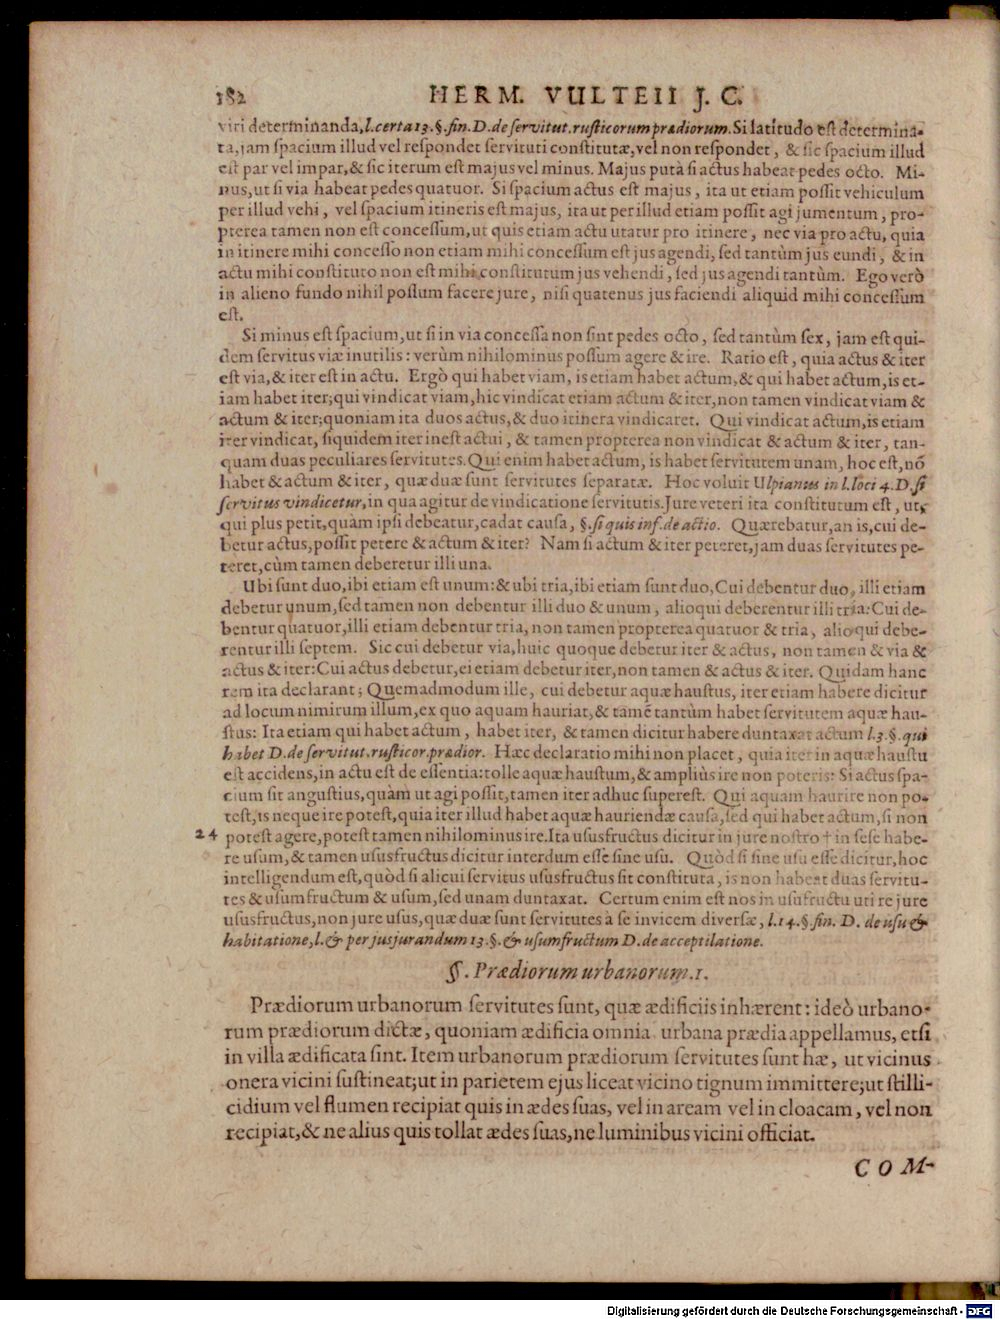 182 HERM. VULTEII J. C.
viri determinanda, l. certa 13. §. fin. D. de ſervitut. ruſticorum prædiorum. Si latitudo eſt determina-
ta, jam ſpacium illud vel reſpondet ſervituti conſtitutæ, vel non reſpondet, & ſic ſpacium illud
eſt par vel impar, & ſic iterum eſt majus vel minus. Majus putà ſi actus habeat pedes octo. Mi-
nus, ut ſi via habeat pedes quatuor. Si ſpacium actus eſt majus, ita ut etiam poſſit vehiculum
per illud vehi, vel ſpacium itineris eſt majus, ita ut per illud etiam poſſit agi jumentum, pro-
pterea tamen non eſt conceſſum, ut quis etiam actu utatur pro itinere, nec via pro actu, quia
in itinere mihi conceſſo non etiam mihi conceſſum eſt jus agendi, ſed tantùm jus eundi, & in
actu mihi conſtituto non eſt mihi conſtitutum jus vehendi, ſed jus agendi tantùm. Ego verò
in alieno fundo nihil poſſum facere jure, niſi quatenus jus faciendi aliquid mihi conceſſum
eſt.
Si minus eſt ſpacium, ut ſi in via conceſſa non ſint pedes octo, ſed tantùm ſex, jam eſt qui-
dem ſervitus viæ inutilis: verùm nihilominus poſſum agere & ire. Ratio eſt, quia actus & iter
eſt via, & iter eſt in actu. Ergò qui habet viam, is etiam habet actum, & qui habet actum, is et-
iam habet iter; qui vindicat viam, hic vindicat etiam actum & iter, non tamen vindicat viam &
actum & iter; quoniam ita duos actus, & duo itinera vindicaret. Qui vindicat actum, is etiam
iter vindicat, ſiquidem iter ineſt actui, & tamen propterea non vindicat & actum & iter, tan-
quam duas peculiares ſervitutes. Qui enim habet actum, is habet ſervitutem unam, hoc eſt, nō
habet & actum & iter, quæ duæ ſunt ſervitutes ſeparatæ. Hoc voluit Ulpianus in l. loci 4. D. ſi
ſervitus vindicetur, in qua agitur de vindicatione ſervitutis. Jure veteri ita conſtitutum eſt, ut,
qui plus petit, quàm ipſi debeatur, cadat cauſa, §. ſi quis inf. de actio. Quærebatur, an is, cui de-
betur actus, poſſit petere & actum & iter? Nam ſi actum & iter peteret, jam duas ſervitutes pe-
teret, cùm tamen deberetur illi una.
Ubi ſunt duo, ibi etiam eſt unum: & ubi tria, ibi etiam ſunt duo, Cui debentur duo, illi etiam
debetur unum, ſed tamen non debentur illi duo & unum, alioqui deberentur illi tria: Cui de-
bentur quatuor, illi etiam debentur tria, non tamen propterea quatuor & tria, alioqui debe-
rentur illi ſeptem. Sic cui debetur via, huic quoque debetur iter & actus, non tamen & via &
actus & iter: Cui actus debetur, ei etiam debetur iter, non tamen & actus & iter. Quidam hanc
rem ita declarant; Quemadmodum ille, cui debetur aquæ hauſtus, iter etiam habere dicitur
ad locum nimirum illum, ex quo aquam hauriat, & tamē tantùm habet ſervitutem aquæ hau-
ſtus: Ita etiam qui habet actum, habet iter, & tamen dicitur habere duntaxat actum l. 3. §. qui
habet D. de ſervitut. ruſticor. prædior. Hæc declaratio mihi non placet, quia iter in aquæ hauſtu
eſt accidens, in actu eſt de eſſentia: tolle aquæ hauſtum, & ampliùs ire non poteris: Si actus ſpa-
cium ſit anguſtius, quàm ut agi poſſit, tamen iter adhuc ſupereſt. Qui aquam haurire non po-
teſt, is neque ire poteſt, quia iter illud habet aquæ hauriendæ cauſa, ſed qui habet actum, ſi non
24 poteſt agere, poteſt tamen nihilominus ire. Ita uſusfructus dicitur in jure noſtro † in ſeſe habe-
re uſum, & tamen uſusfructus dicitur interdum eſſe ſine uſu. Quòd ſi ſine uſu eſſe dicitur, hoc
intelligendum eſt, quòd ſi alicui ſervitus uſusfructus ſit conſtituta, is non habeat duas ſervitu-
tes & uſumfructum & uſum, ſed unam duntaxat. Certum enim eſt nos in uſufructu uti re jure
uſusfructus, non jure uſus, quæ duæ ſunt ſervitutes à ſe invicem diverſæ, l. 14. §. fin. D. de uſu &
habitatione, l. & per jusjurandum 13. §. & uſumfructum D. de acceptilatione.
§. Prædiorum urbanorum. 1.
Prædiorum urbanorum ſervitutes ſunt, quæ ædificiis inhærent: ideò urbano-
rum prædiorum dictæ, quoniam ædificia omnia urbana prædia appellamus, etſi
in villa ædificata ſint. Item urbanorum prædiorum ſervitutes ſunt hæ, ut vicinus
onera vicini ſuſtineat; ut in parietem ejus liceat vicino tignum immittere; ut ſtilli-
cidium vel flumen recipiat quis in ædes ſuas, vel in aream vel in cloacam, vel non
recipiat, & ne alius quis tollat ædes ſuas, ne luminibus vicini officiat.
COM-
Digitalisierung gefördert durch die Deutsche Forschungsgemeinschaft - DFG